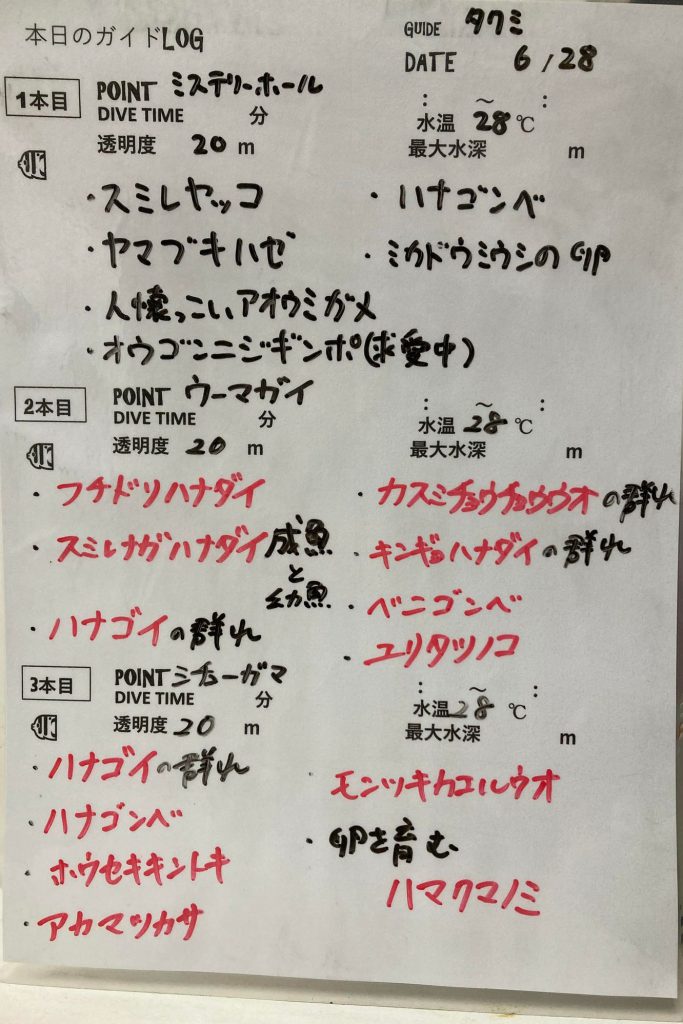 本日のガイドLOG
GUIDE タクミ
DATE 6/28
1本目 POINT ミステリーホール
DIVE TIME 分 : ～ :
透明度 20 m 水温 28℃
最大水深 m
・スミレヤッコ ・ハナゴンベ
・ヤマブキハゼ ・ミカドウミウシの卵
・人懐っこいアオウミガメ
・オウゴンニジギンポ(求愛中)
2本目 POINT ウーマガイ
DIVE TIME 分 : ～ :
透明度 20 m 水温 28℃
最大水深 m
・フチドリハナダイ ・カスミチョウチョウウオの群れ
・スミレナガハナダイ成魚と幼魚 ・キンギョハナダイの群れ
・ベニゴンベ
・ハナゴイの群れ ・ユリタツノコ
3本目 POINT シチューガマ
DIVE TIME 分 : ～ :
透明度 20 m 水温 28℃
最大水深 m
・ハナゴイの群れ ・モンツキカエルウオ
・ハナゴンベ ・卵を育む
・ホウセキキントキ ハマクマノミ
・アカマツカサ